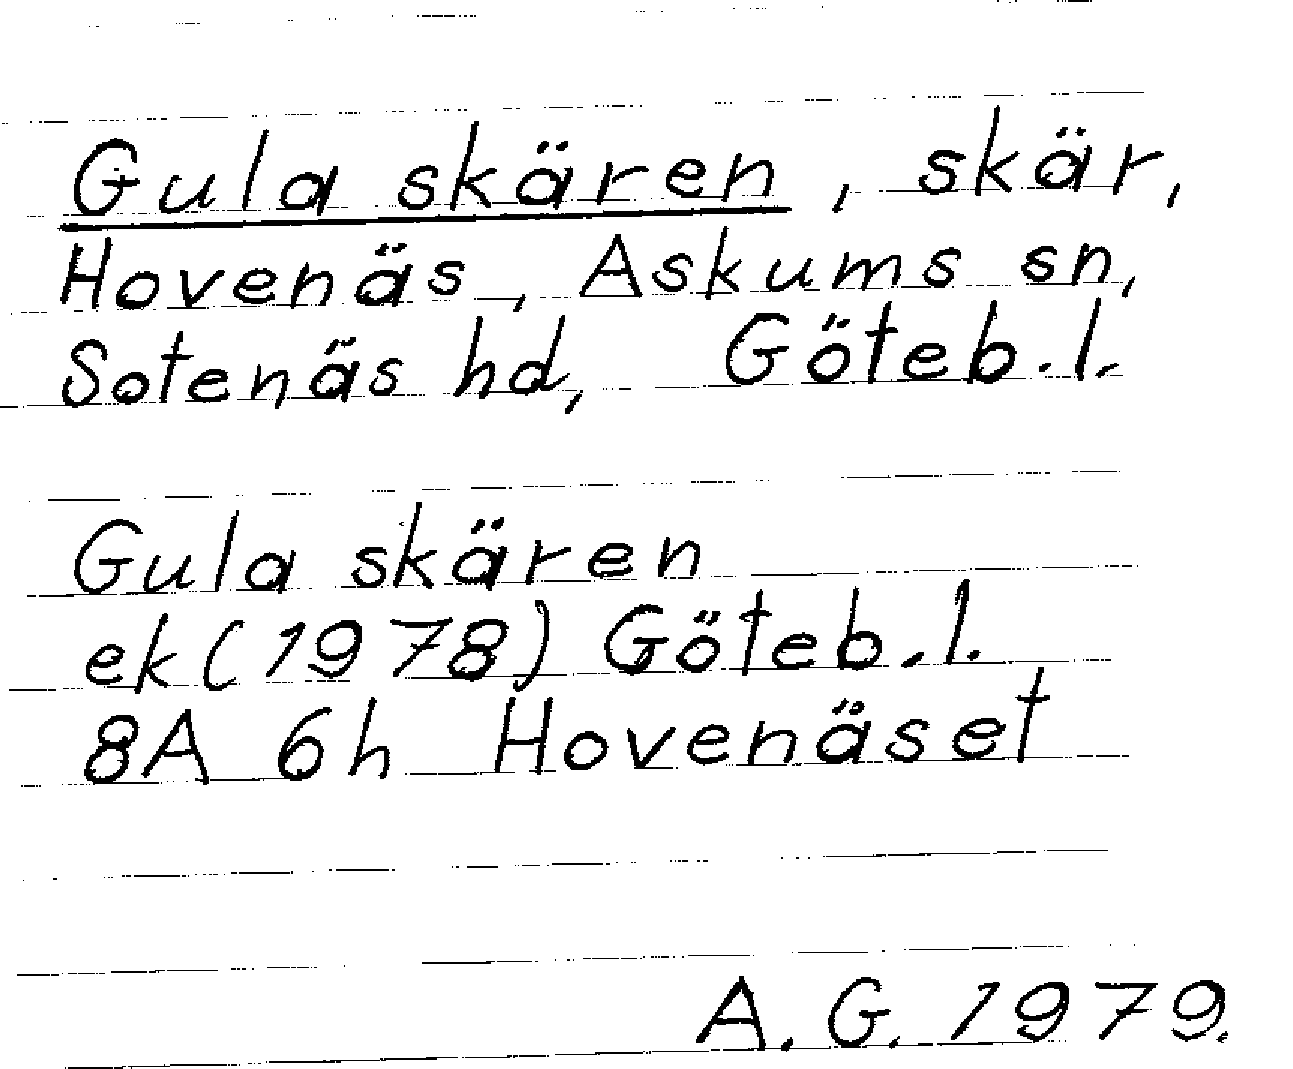 Gula skären, skär,
Hovenäs, Askums sn,
Sotenäs hd, Göteb.l.
Gula skären
ek(1978) Göteb.l.
8A 6h Hovenäset
A.G. 1979.